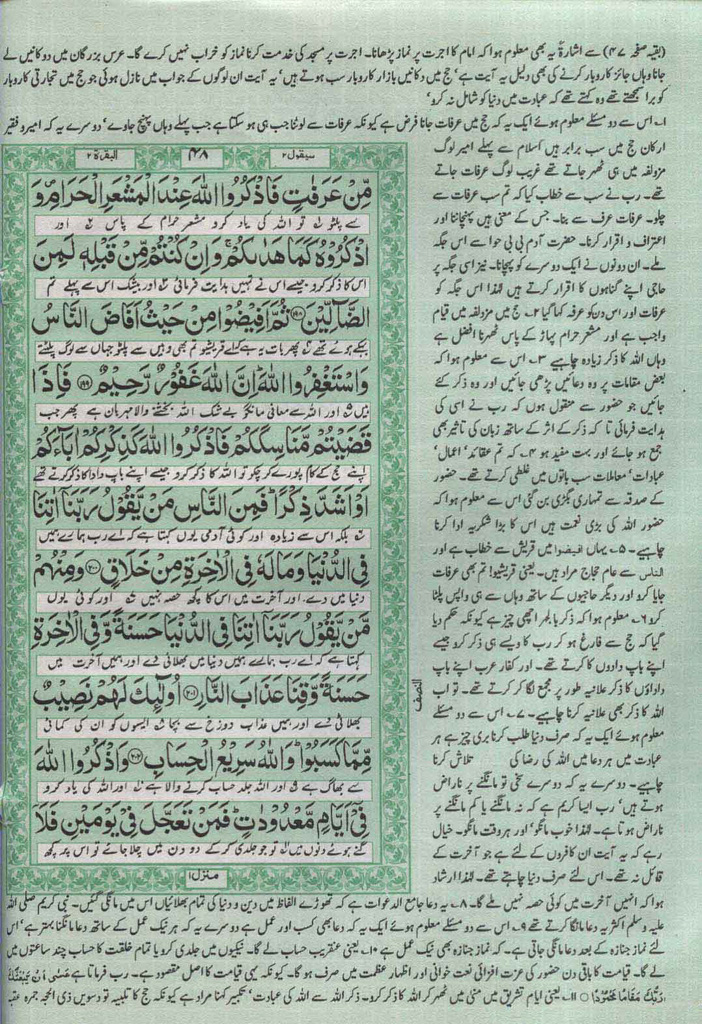 (بقیہ صفحہ ۴۷) سے اشارۃً یہ بھی معلوم ہوا کہ امام کا اجرت پر نماز پڑھانا۔ اجرت پر مسجد کی خدمت کرنا نماز کو خراب نہیں کرے گا۔ عرس بزرگان میں دوکانیں لے
جانا وہاں جائز کاروبار کرنے کی بھی دلیل یہ آیت ہے' حج میں دکانیں بازار کاروبار سب ہوتے ہیں' یہ آیت ان لوگوں کے جواب میں نازل ہوئی جو حج میں تجارتی کاروبار
کو برا سمجھتے تھے وہ کہتے تھے کہ عبادت میں دنیا کو شامل نہ کرو'
۱۔ اس سے دو مسئلے معلوم ہوئے ایک یہ کہ حج میں عرفات جانا فرض ہے کیونکہ عرفات سے لوٹنا جب ہی ہو سکتا ہے جب پہلے وہاں پہنچ جاوے' دوسرے یہ کہ امیر و فقیر
ارکان حج میں سب برابر ہیں اسلام سے پہلے امیر لوگ
مزدلفہ میں ہی ٹھہر جاتے تھے غریب لوگ عرفات جاتے
تھے۔ رب نے سب سے خطاب کیا کہ تم سب عرفات سے
چلو۔ عرفات عرف سے بنا۔ جس کے معنی ہیں پہنچاننا اور
اعتراف و اقرار کرنا۔ حضرت آدم بی بی حوا سے اس جگہ
ملے۔ ان دونوں نے ایک دوسرے کو پہچانا۔ نیز اسی جگہ پر
حاجی اپنے گناہوں کا اقرار کرتے ہیں لہٰذا اس جگہ کو
عرفات اور اس دن کو عرفہ کہا گیا ۲۔ حج میں مزدلفہ میں قیام
واجب ہے اور مشعر حرام پہاڑ کے پاس ٹھہرنا افضل ہے
وہاں اللہ کا ذکر زیادہ چاہیے ۳۔ اس سے معلوم ہوا کہ
بعض مقامات پر وہ دعائیں پڑھی جائیں اور وہ ذکر کئے
جائیں جو حضور سے منقول ہوں کہ رب نے اسی کی
ہدایت فرمائی تا کہ ذکر کے اثر کے ساتھ زبان کی تاثیر بھی
جمع ہو جائے اور بہت مفید ہو ۴۔ کہ تم عقائد' اعمال'
عبادات' معاملات سب باتوں میں غلطی کرتے تھے۔ حضور
کے صدقہ سے تمہاری بگڑی بن گئی اس سے معلوم ہوا کہ
حضور اللہ کی بڑی نعمت ہیں اس کا بڑا شکریہ ادا کرنا
چاہیے۔ ۵۔ یہاں افیضوا میں قریش سے خطاب ہے اور
الناس سے عام حجاج مراد ہیں۔ یعنی قریشیو! تم بھی عرفات
جایا کرو اور دیگر حاجیوں کے ساتھ وہاں سے ہی واپس پلٹا
کرو ۶۔ معلوم ہوا کہ ذکر بالجہر اچھی چیز ہے کیونکہ حکم دیا
گیا کہ حج سے فارغ ہو کر رب کا ویسے ہی ذکر کرو جیسے
اپنے باپ دادوں کا کرتے تھے۔ اور کفار عرب اپنے باپ
داداؤں کا ذکر علانیہ طور پر مجمع لگا کر کرتے تھے۔ تو اب
اللہ کا ذکر بھی علانیہ کرنا چاہیے۔ ۷۔ اس سے دو مسئلے
معلوم ہوئے ایک یہ کہ صرف دنیا طلب کرنا بری چیز ہے ہر
عبادت میں ہر دعا میں اللہ کی رضا کی تلاش کرنا
چاہیے۔ دوسرے یہ کہ دوسرے سخی تو مانگنے پر ناراض
ہوتے ہیں' رب ایسا کریم ہے کہ نہ مانگنے یا کم مانگنے پر
ناراض ہوتا ہے۔ لہٰذا خوب مانگو' اور ہر وقت مانگو۔ خیال
رہے کہ یہ آیت ان کافروں کے لئے ہے جو آخرت کے
قائل نہ تھے۔ اس لئے صرف دنیا چاہتے تھے۔ لہٰذا ارشاد
سیقول ۲
۴۸
البقرۃ ۲
مِّنْ عَرَفٰتٍ فَاذْكُرُوا اللّٰهَ عِنْدَ الْمَشْعَرِ الْحَرَامِ وَ
سے پلٹو تو اللہ کی یاد کرو مشعر حرام کے پاس اور
اذْكُرُوْهُ كَمَا هَدٰىكُمْ وَاِنْ كُنْتُمْ مِّنْ قَبْلِهٖ لَمِنَ
اس کا ذکر کرو جیسے اس نے تمہیں ہدایت فرمائی اور بیشک اس سے پہلے تم
الضَّآلِّيْنَ ۱۹۸ ثُمَّ اَفِيْضُوْا مِنْ حَيْثُ اَفَاضَ النَّاسُ
بہکے ہوئے تھے پھر بات یہ ہے کہ اے قریشیو تم بھی وہیں سے پلٹو جہاں سے لوگ پلٹتے
وَاسْتَغْفِرُوا اللّٰهَ اِنَّ اللّٰهَ غَفُوْرٌ رَّحِيْمٌ ۱۹۹ فَاِذَا
ہیں اور اللہ سے معافی مانگو بے شک اللہ بخشنے والا مہربان ہے پھر جب
قَضَيْتُمْ مَّنَاسِكَكُمْ فَاذْكُرُوا اللّٰهَ كَذِكْرِكُمْ اٰبَآءَكُمْ
اپنے حج کے کام پورے کر چکو تو اللہ کا ذکر کرو جیسے اپنے باپ دادا کا ذکر کرتے تھے
اَوْ اَشَدَّ ذِكْرًا فَمِنَ النَّاسِ مَنْ يَّقُوْلُ رَبَّنَآ اٰتِنَا
بلکہ اس سے زیادہ اور کوئی آدمی یوں کہتا ہے کہ اے رب ہمارے ہمیں
فِي الدُّنْيَا وَمَا لَهٗ فِي الْاٰخِرَةِ مِنْ خَلَاقٍ ۲۰۰ وَمِنْهُمْ
دنیا میں دے۔ اور آخرت میں اس کا کچھ حصہ نہیں اور کوئی یوں
مَّنْ يَّقُوْلُ رَبَّنَآ اٰتِنَا فِي الدُّنْيَا حَسَنَةً وَّفِي الْاٰخِرَةِ
کہتا ہے کہ اے رب ہمارے ہمیں دنیا میں بھلائی دے اور ہمیں آخرت میں
حَسَنَةً وَّقِنَا عَذَابَ النَّارِ ۲۰۱ اُولٰٓئِكَ لَهُمْ نَصِيْبٌ
بھلائی دے اور ہمیں عذاب دوزخ سے بچا ایسوں کو ان کی کمائی
مِّمَّا كَسَبُوْا وَاللّٰهُ سَرِيْعُ الْحِسَابِ ۲۰۲ وَاذْكُرُوا اللّٰهَ
سے بھاگ ہے اور اللہ جلد حساب کرنے والا ہے اور اللہ کی یاد کرو
فِيْٓ اَيَّامٍ مَّعْدُوْدٰتٍ فَمَنْ تَعَجَّلَ فِيْ يَوْمَيْنِ فَلَآ
گنے ہوئے دنوں میں تو جو جلدی کر کے دو دن میں چلا جائے تو اس پر کچھ
النصف
منزل ۱
ہوا کہ انہیں آخرت میں کوئی حصہ نہیں ملے گا۔ ۸۔ یہ دعا جامع الدعوات ہے کہ تھوڑے الفاظ میں دین و دنیا کی تمام بھلائیاں اس میں مانگی گئیں۔ نبی کریم صلی اللہ
علیہ وسلم اکثر یہ دعا مانگا کرتے تھے ۹۔ اس سے دو مسئلے معلوم ہوئے ایک یہ کہ دعا بھی کسب اور عمل ہے دوسرے یہ کہ ہر نیک عمل کے ساتھ دعا مانگنا بہتر ہے' اس
لئے نماز جنازہ کے بعد دعا مانگی جاتی ہے۔ کہ نماز جنازہ بھی نیک عمل ہے ۱۰۔ یعنی عنقریب حساب لے گا۔ نیکیوں میں جلدی کرو یا تمام خلقت کا حساب چند ساعتوں میں
لے گا۔ قیامت کا باقی دن حضور کی عزت افزائی نعت خوانی اور اظہار عظمت میں صرف ہو گا۔ کیونکہ یہی قیامت کا اصل مقصود ہے۔ رب فرماتا ہے عَسٰٓى اَنْ يَّبْعَثَكَ
رَبُّكَ مَقَامًا مَّحْمُوْدًا ۱۱۔ یعنی ایام تشریق میں منیٰ میں ٹھہر کر اللہ کا ذکر کرو۔ ذکر اللہ سے اللہ کی عبادت' تکبیر کہنا مراد ہے کیونکہ حج کا تلبیہ تو دسویں ذی الحجہ جمرہ عقبہ